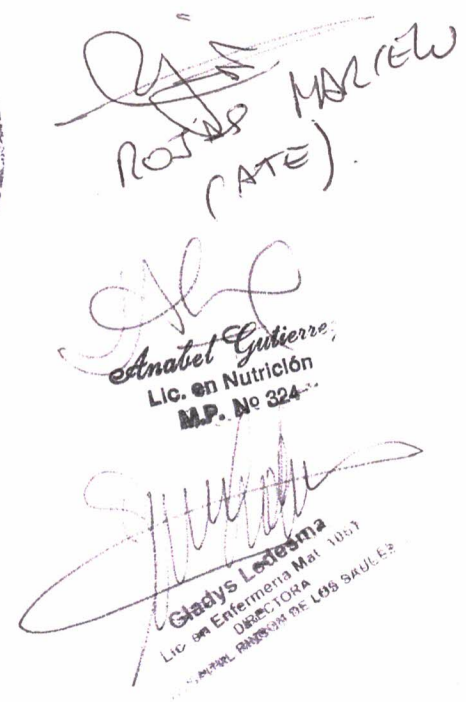 ROJAS MARCELO
(ATE).
Anabel Gutierrez
Lic. en Nutrición
M.P. Nº 324
Gladys Ledesma
Lic en Enfermeria Mat 1061
DIRECTORA
RINCON DE LOS SAUCES